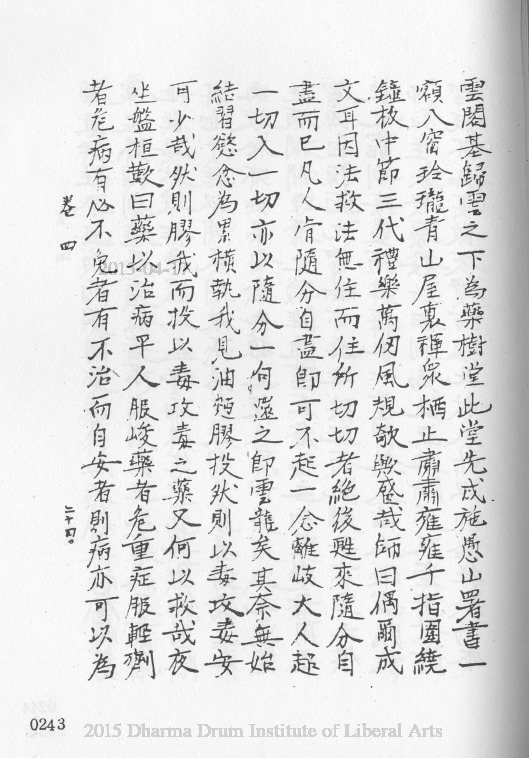 雲閣基歸雲之下為藥樹堂此堂先成施愚山署書一
額八窗玲瓏青山屋裏禪眾栖止肅肅雍雍千指圍繞
鐘板中節三代禮樂萬仞風規欹歟盛哉師曰偶爾成
文耳因法救法無住而住所切切者絕後甦來隨分自
盡而已凡人肯隨分自盡即可不起一念離岐大人起
一切入一切亦以隨分一句還之即雲龍矣其奈無始
結習慾念為累橫執我見油麵膠投然則以毒攻毒安
可少哉然則膠我而投以毒攻毒之藥又何以救哉夜
坐盤桓歎曰藥以治病平人服峻藥者危重症服輕劑
者危病有必不免者有不治而自安者則病亦可以為
卷四
二十四
2015-04-1
0243
2015 Dharma Drum Institute of Liberal Arts